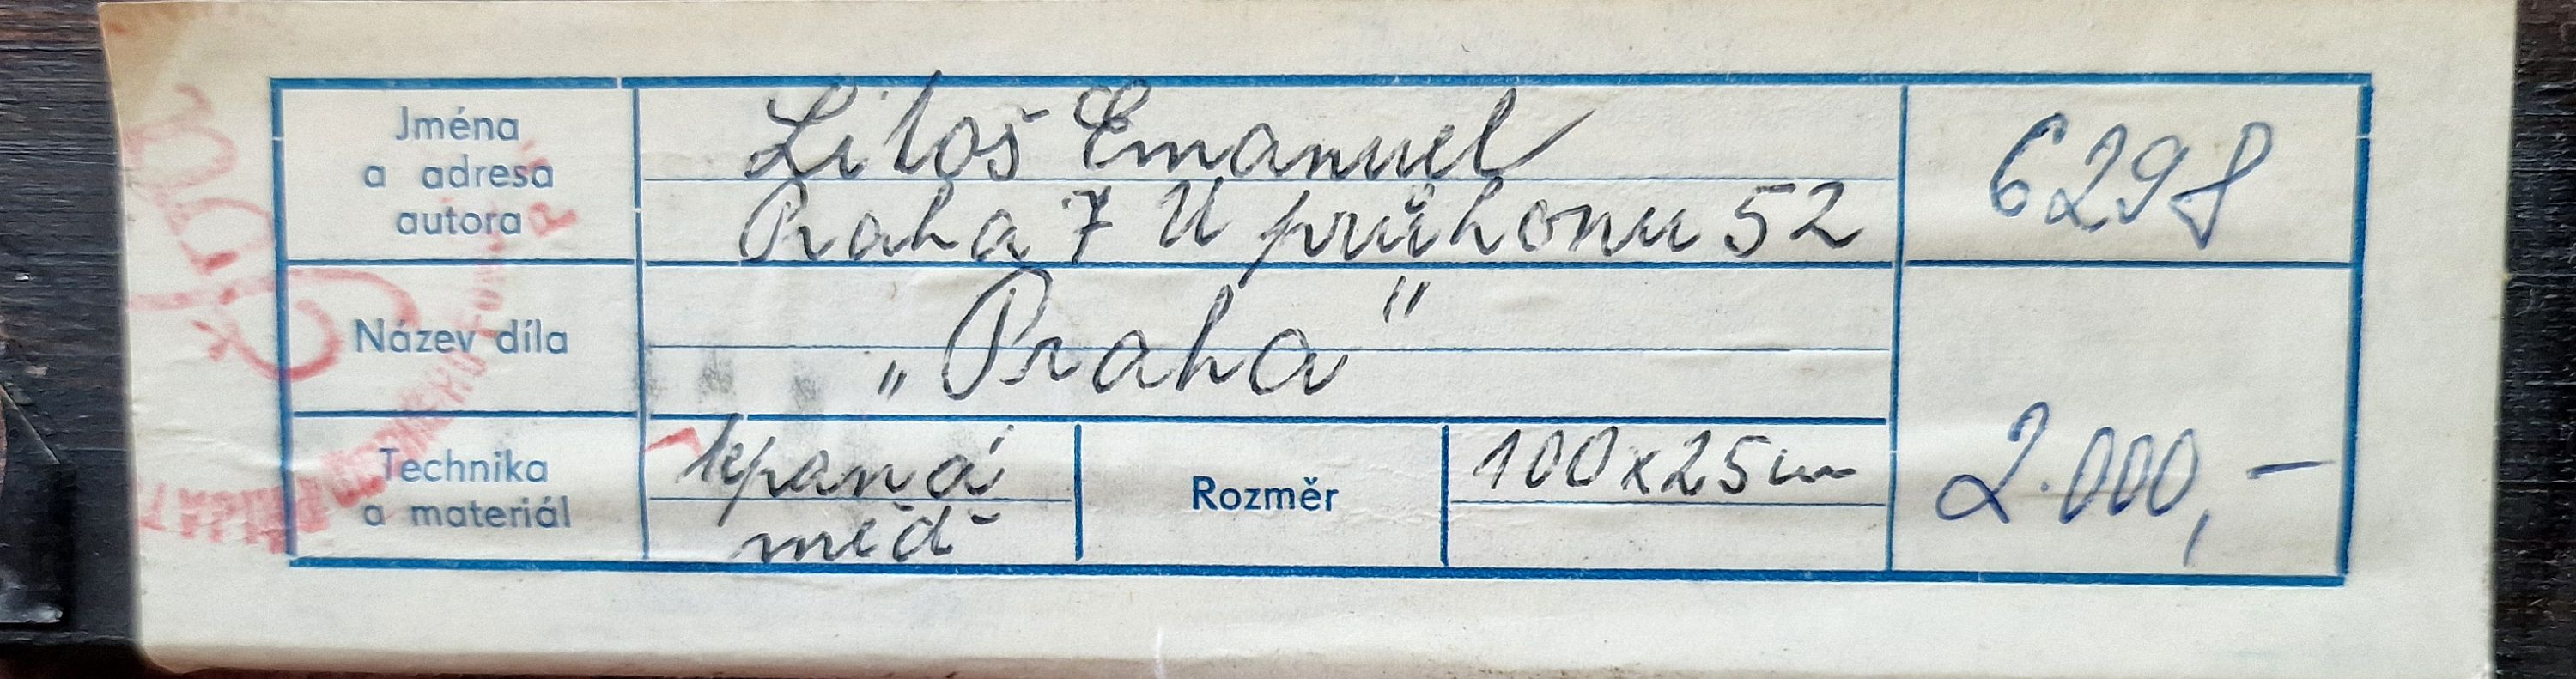 Jména
a adresa
autora
Litoš Emanuel
Praha 7 U průhonu 52
6298
Název díla
„Praha"
Technika
a materiál
tepaná
měď
Rozměr
100x25cm
2.000,-